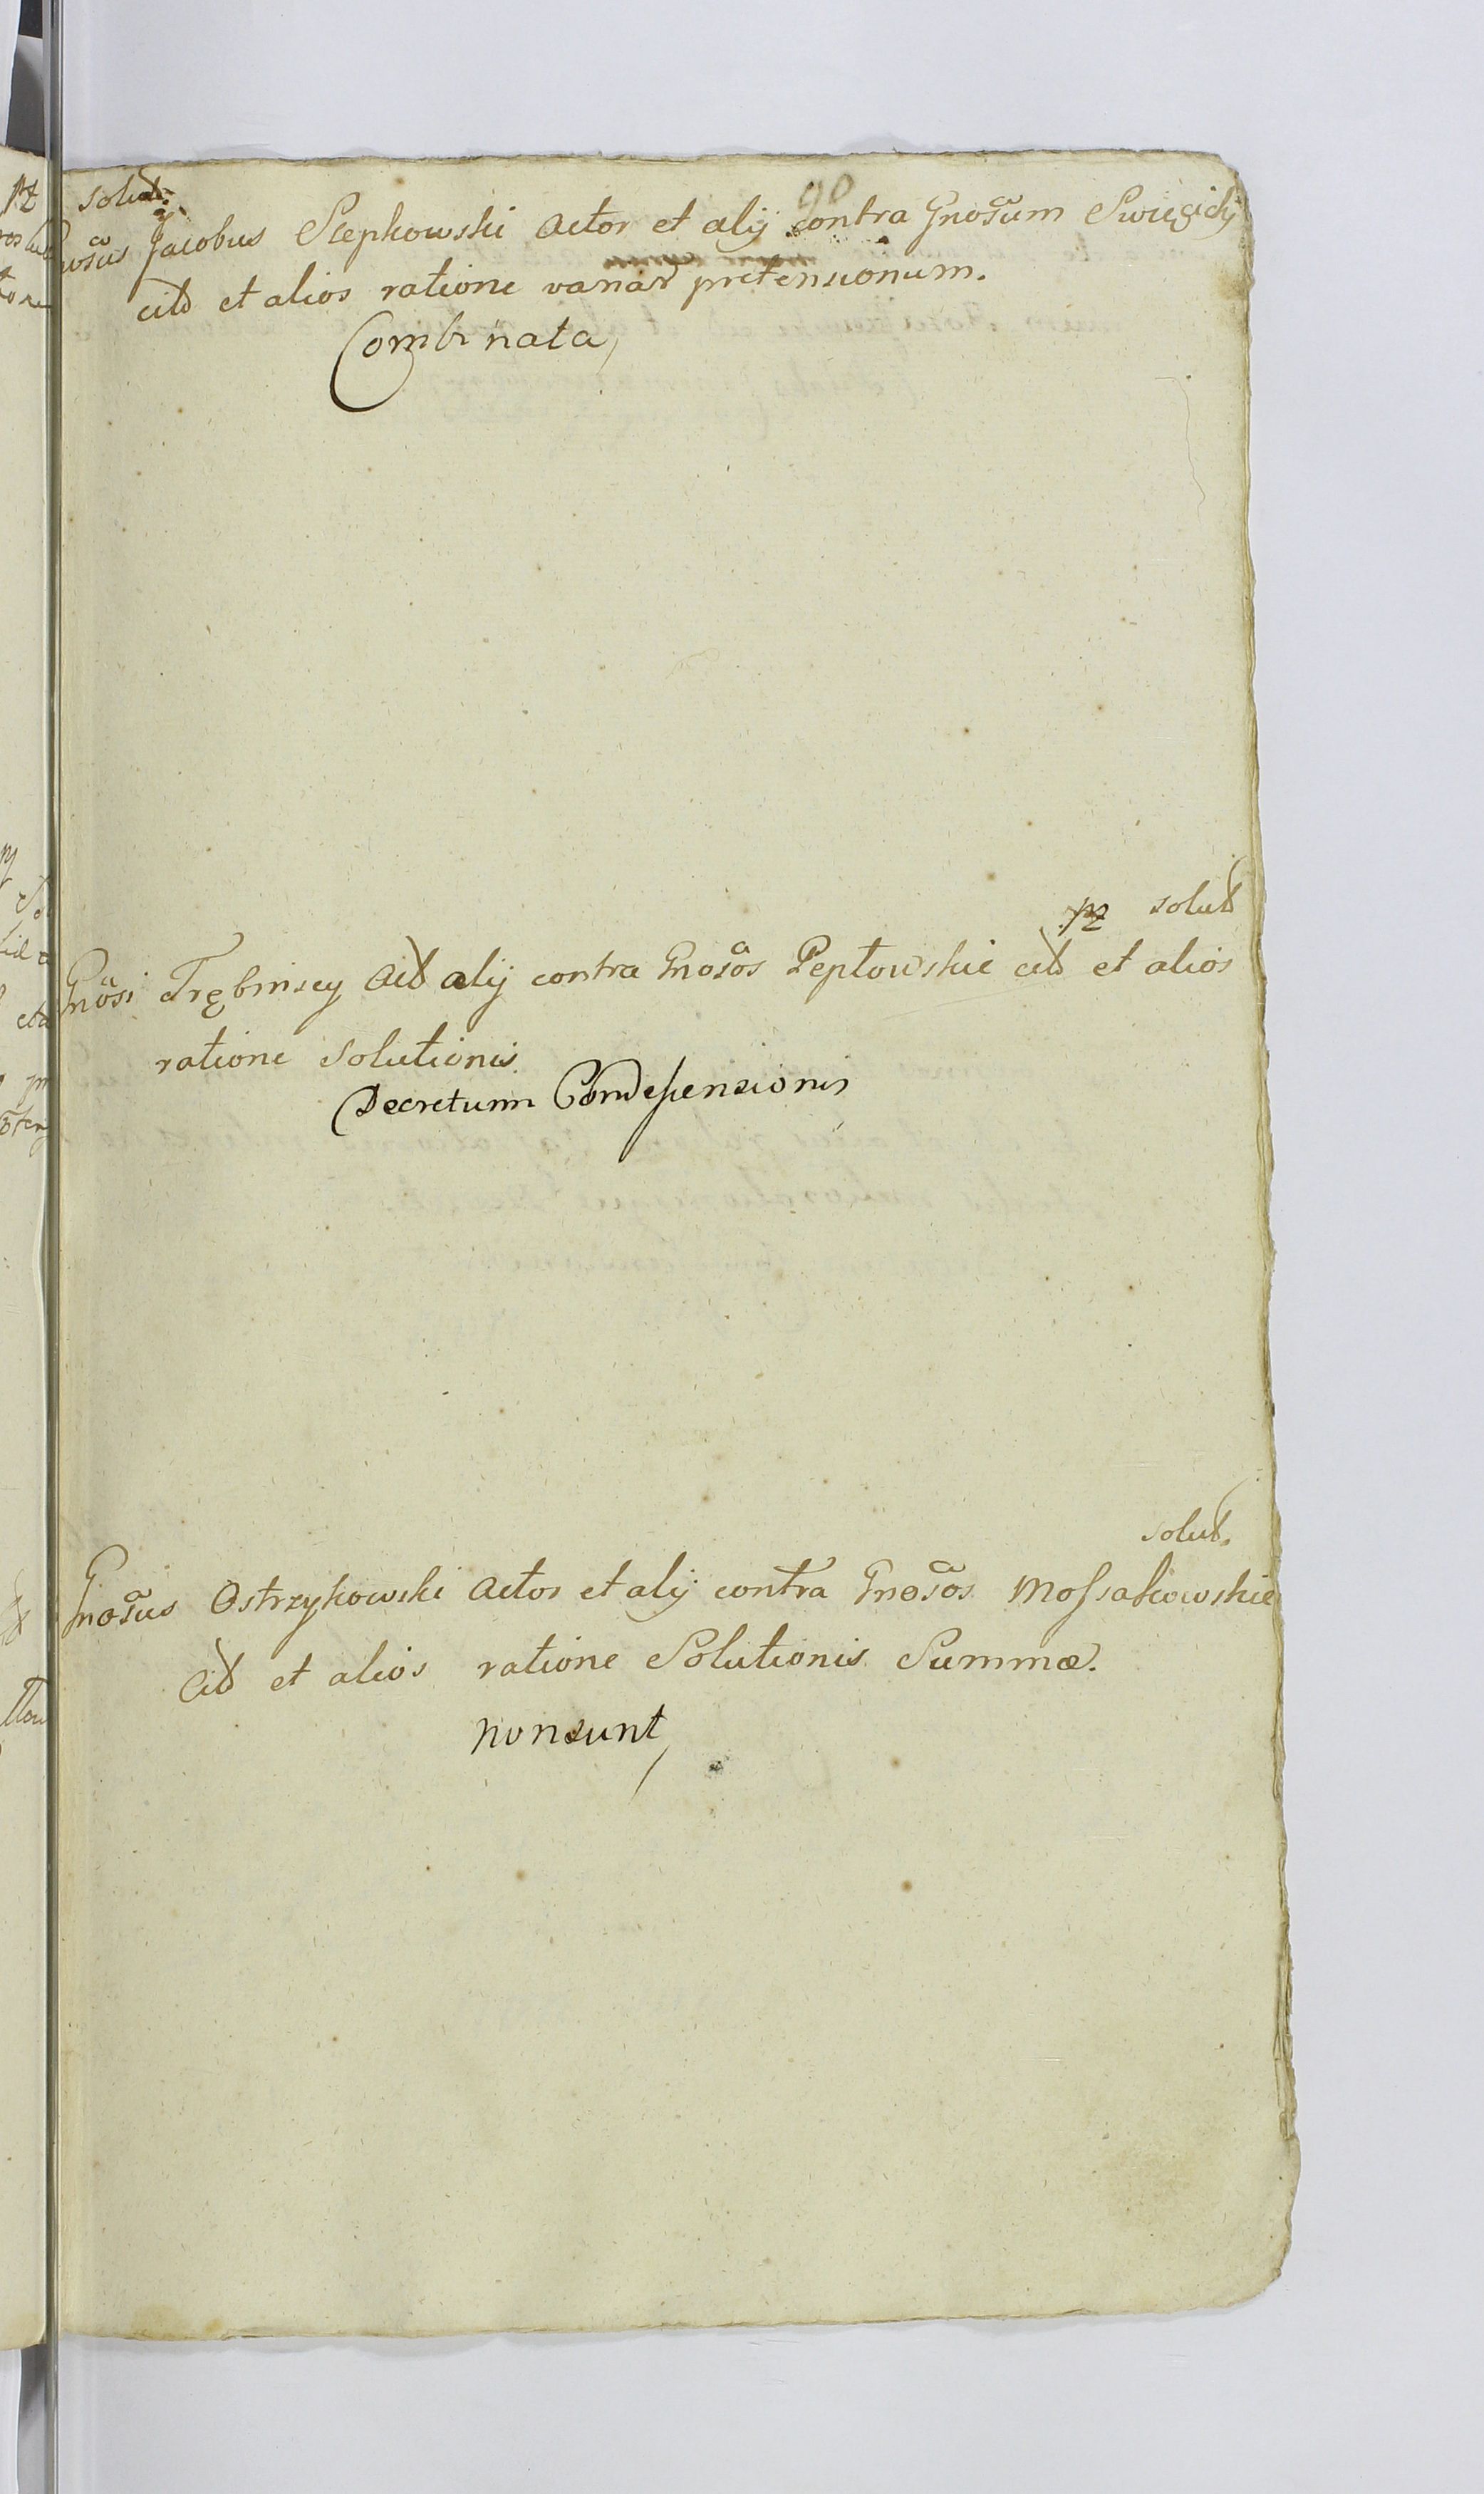 90
solut
Gnosus Jacobus Stępkowski Actor et alij contra Gnosum Swięcicky
citt et alios ratione variar pretensionum.
Combinata
pz solut
Gnosi Trębinscy Act alij contra Gnosos Peptowskie citt et alios
ratione solutionis
Decretum Condescensionis
solut.
Gnosus Ostrzykowski Actor et alij contra Gnosos Mossakowskie
Citt et alios ratione Solutionis Summæ.
non sunt